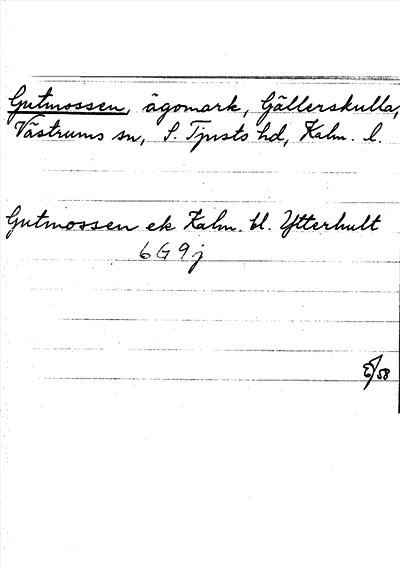 Gutmossen, ägomark, Gällerskulla,
Västrums sn, S. Tjusts hd, Kalm. l.
Gutmossen ek Kalm. bl. Ytterhult
6G9j
E/58